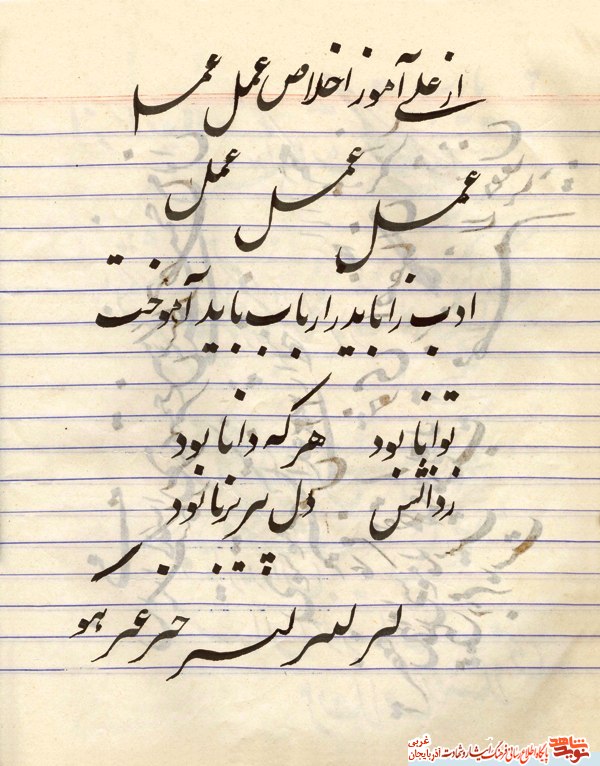 از علی آموز اخلاص عمل عمل
عمل عمل عمل
ادب را باید از ارباب باید آموخت
توانا بود هر که دانا بود
ز دانش دل پیر برنا بود
هو
نوید شاهد پایگاه اطلاع رسانی فرهنگ ایثار و شهادت آذربایجان غربی